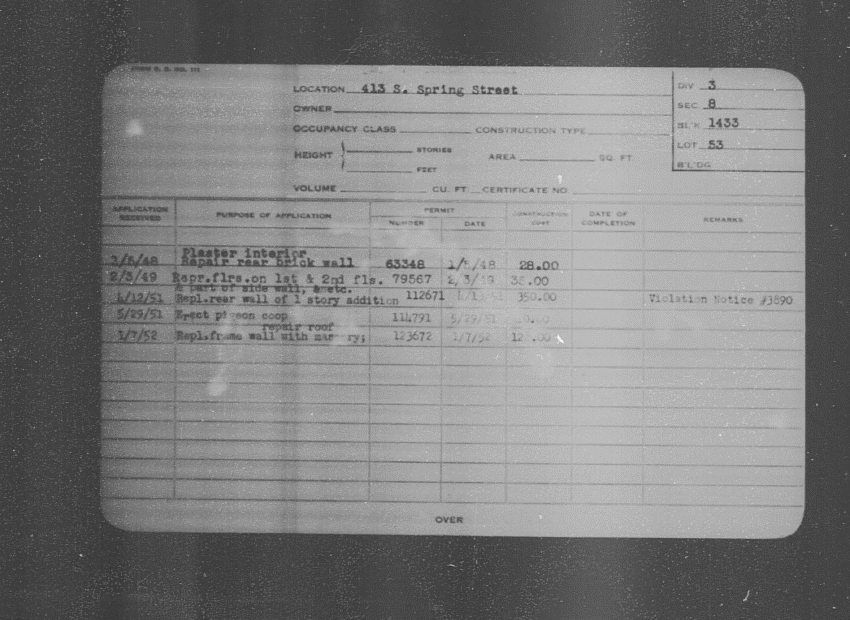 FORM G. D. NO. 111
LOCATION 413 S. Spring Street
DIV 3
OWNER
SEC 8
OCCUPANCY CLASS CONSTRUCTION TYPE
BL'K 1433
HEIGHT STORIES FEET AREA SQ. FT.
LOT 53
B'L'DG
VOLUME CU. FT. CERTIFICATE NO.
APPLICATION RECEIVED PURPOSE OF APPLICATION PERMIT NUMBER DATE CONSTRUCTION COST DATE OF COMPLETION REMARKS
Plaster interior
1/5/48 Repair rear brick wall 63348 1/5/48 28.00
2/3/49 Repr.flrs.on 1st & 2nd fls. 79567 2/3/49 .00
& part of side wall, &etc.
4/12/51 Repl.rear wall of 1 story addition 112671 350.00 Violation Notice #3890
5/29/51 Erect pigeon coop 114791 5/29/51
repair roof
1/7/52 Repl.frame wall with masonry; 123672 1/7/52
OVER